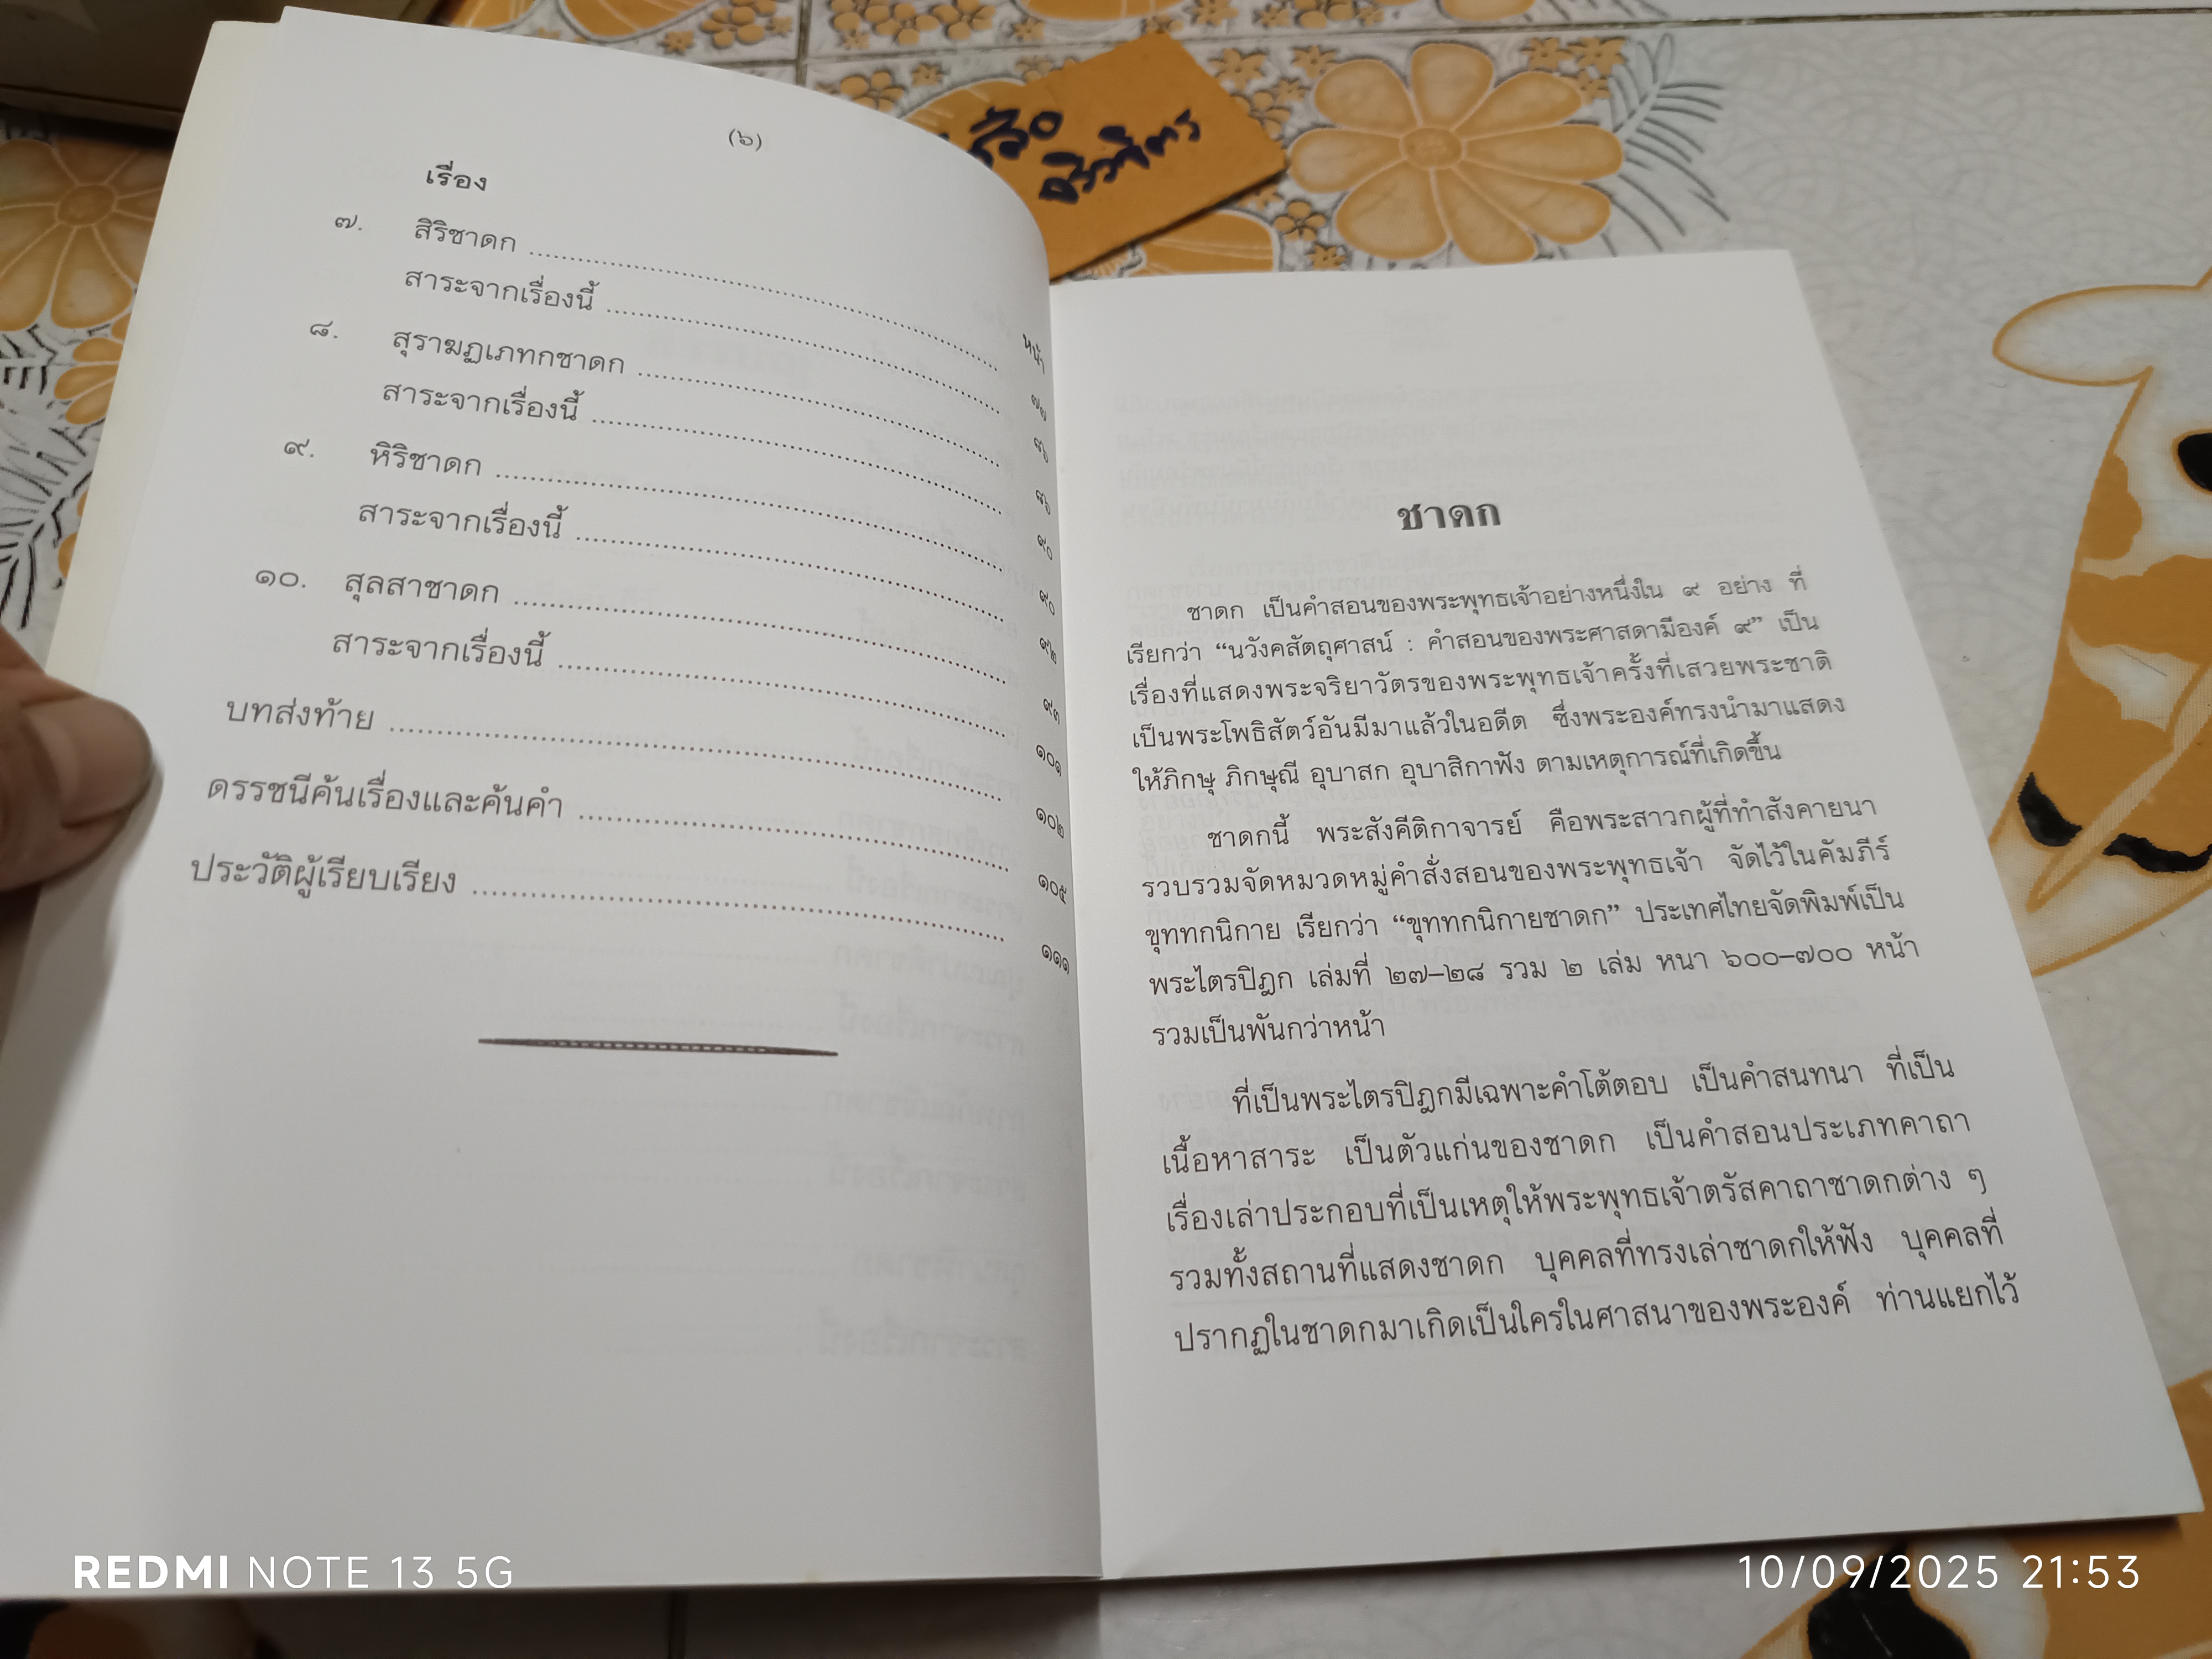 (๖)
เรื่อง
หน้า
๗. สิริชาดก ๗๗
สาระจากเรื่องนี้ ๘๖
๘. สุราฆฏเภทกชาดก ๘๖
สาระจากเรื่องนี้ ๙๐
๙. หิริชาดก ๙๐
สาระจากเรื่องนี้ ๙๒
๑๐. สุลสาชาดก ๙๓
สาระจากเรื่องนี้ ๑๐๑
บทส่งท้าย ๑๐๒
ดรรชนีค้นเรื่องและค้นคำ ๑๐๕
ประวัติผู้เรียบเรียง ๑๑๑
ชาดก
ชาดก เป็นคำสอนของพระพุทธเจ้าอย่างหนึ่งใน ๙ อย่าง ที่
เรียกว่า “นวังคสัตถุศาสน์ : คำสอนของพระศาสดามีองค์ ๙” เป็น
เรื่องที่แสดงพระจริยาวัตรของพระพุทธเจ้าครั้งที่เสวยพระชาติ
เป็นพระโพธิสัตว์อันมีมาแล้วในอดีต ซึ่งพระองค์ทรงนำมาแสดง
ให้ภิกษุ ภิกษุณี อุบาสก อุบาสิกาฟัง ตามเหตุการณ์ที่เกิดขึ้น
ชาดกนี้ พระสังคีติกาจารย์ คือพระสาวกผู้ที่ทำสังคายนา
รวบรวมจัดหมวดหมู่คำสั่งสอนของพระพุทธเจ้า จัดไว้ในคัมภีร์
ขุททกนิกาย เรียกว่า “ขุททกนิกายชาดก” ประเทศไทยจัดพิมพ์เป็น
พระไตรปิฎก เล่มที่ ๒๗–๒๘ รวม ๒ เล่ม หนา ๖๐๐–๗๐๐ หน้า
รวมเป็นพันกว่าหน้า
ที่เป็นพระไตรปิฎกมีเฉพาะคำโต้ตอบ เป็นคำสนทนา ที่เป็น
เนื้อหาสาระ เป็นตัวแก่นของชาดก เป็นคำสอนประเภทคาถา
เรื่องเล่าประกอบที่เป็นเหตุให้พระพุทธเจ้าตรัสคาถาชาดกต่าง ๆ
รวมทั้งสถานที่แสดงชาดก บุคคลที่ทรงเล่าชาดกให้ฟัง บุคคลที่
ปรากฏในชาดกมาเกิดเป็นใครในศาสนาของพระองค์ ท่านแยกไว้
REDMI NOTE 13 5G
10/09/2025 21:53